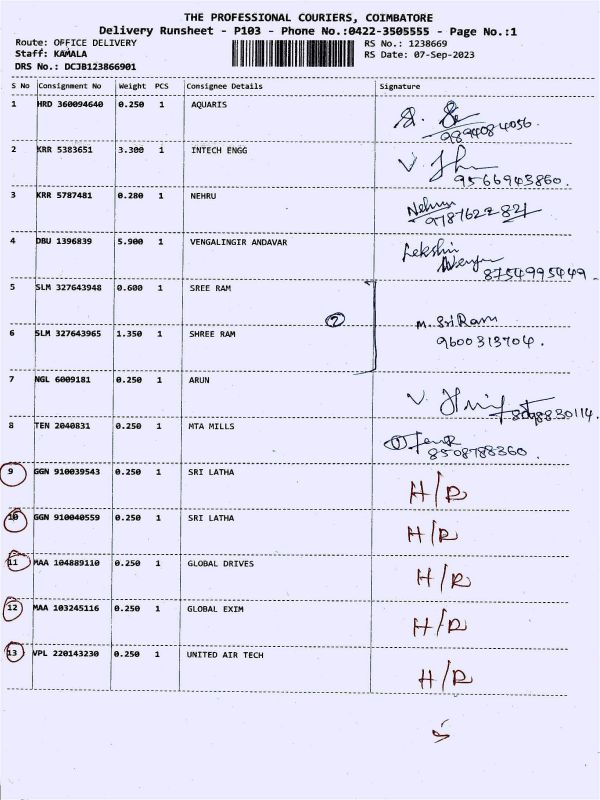 THE PROFESSIONAL COURIERS, COIMBATORE
Delivery Runsheet - P103 - Phone No.:0422-3505555 - Page No.:1
Route: OFFICE DELIVERY RS No.: 1238669
Staff: KAMALA RS Date: 07-Sep-2023
DRS No.: DCJB123866901
S No Consignment No Weight PCS Consignee Details Signature
1 HRD 360094640 0.250 1 AQUARIS
9894084056.
2 KRR 5383651 3.300 1 INTECH ENGG
9566943860.
3 KRR 5787481 0.280 1 NEHRU Nehru
9787622821
4 DBU 1396839 5.900 1 VENGALINGIR ANDAVAR
8754995449.
5 SLM 327643948 0.600 1 SREE RAM
2 M. Sri Ram
6 SLM 327643965 1.350 1 SHREE RAM 9600313704.
7 NGL 6009181 0.250 1 ARUN
8098830114.
8 TEN 2040831 0.250 1 MTA MILLS
8508788360.
9 GGN 910039543 0.250 1 SRI LATHA H/R
10 GGN 910040559 0.250 1 SRI LATHA H/R
11 MAA 104889110 0.250 1 GLOBAL DRIVES H/R
12 MAA 103245116 0.250 1 GLOBAL EXIM H/R
13 VPL 220143230 0.250 1 UNITED AIR TECH H/R